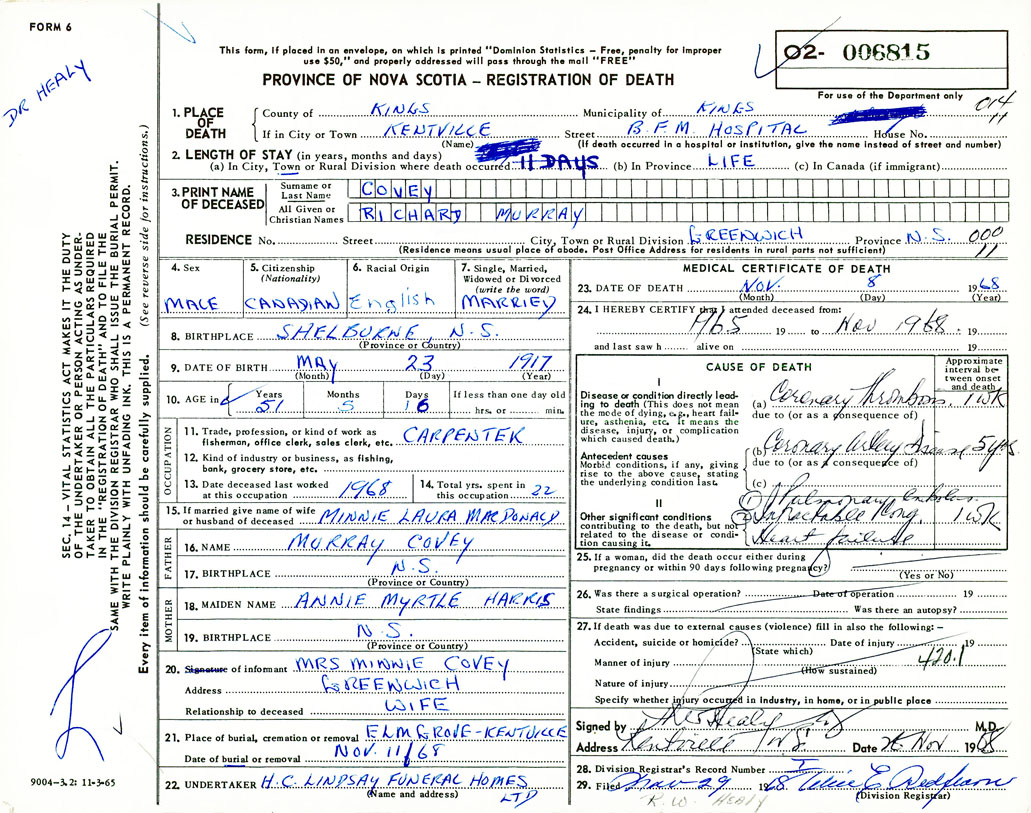 FORM 6
DR HEALY
This form, if placed in an envelope, on which is printed "Dominion Statistics – Free, penalty for improper
use $50," and properly addressed will pass through the mail "FREE"
PROVINCE OF NOVA SCOTIA – REGISTRATION OF DEATH
02- 006815
For use of the Department only
014
11
1. PLACE OF DEATH
County of KINGS Municipality of KINGS
If in City or Town KENTVILLE Street B.F.M. HOSPITAL House No.
(Name) (If death occurred in a hospital or institution, give the name instead of street and number)
2. LENGTH OF STAY (in years, months and days)
(a) In City, Town or Rural Division where death occurred 11 DAYS (b) In Province LIFE (c) In Canada (if immigrant)
3. PRINT NAME OF DECEASED
Surname or Last Name COVEY
All Given or Christian Names RICHARD MURRAY
RESIDENCE No. Street City, Town or Rural Division GREENWICH Province N.S. 000
11
(Residence means usual place of abode. Post Office Address for residents in rural parts not sufficient)
4. Sex MALE
5. Citizenship (Nationality) CANADIAN
6. Racial Origin English
7. Single, Married, Widowed or Divorced (write the word) MARRIED
8. BIRTHPLACE SHELBURNE, N.S.
(Province or Country)
9. DATE OF BIRTH MAY 23 1917
(Month) (Day) (Year)
10. AGE in Years 51 Months 5 Days 16 If less than one day old hrs. or min.
OCCUPATION
11. Trade, profession, or kind of work as fisherman, office clerk, sales clerk, etc. CARPENTER
12. Kind of industry or business, as fishing, bank, grocery store, etc.
13. Date deceased last worked at this occupation 1968
14. Total yrs. spent in this occupation 22
15. If married give name of wife or husband of deceased MINNIE LAURA MACDONALD
FATHER
16. NAME MURRAY COVEY
17. BIRTHPLACE N.S.
(Province or Country)
MOTHER
18. MAIDEN NAME ANNIE MYRTLE HARRIS
19. BIRTHPLACE N.S.
(Province or Country)
20. Signature of informant MRS MINNIE COVEY
Address GREENWICH
Relationship to deceased WIFE
21. Place of burial, cremation or removal ELM GROVE-KENTVILLE
Date of burial or removal NOV. 11/68
22. UNDERTAKER H.C. LINDSAY FUNERAL HOMES LTD
(Name and address)
MEDICAL CERTIFICATE OF DEATH
23. DATE OF DEATH NOV. 8 1968
(Month) (Day) (Year)
24. I HEREBY CERTIFY that I attended deceased from:
1965 19 to Nov 1968 19
and last saw h alive on 19
CAUSE OF DEATH
Approximate interval between onset and death
I
Disease or condition directly leading to death (This does not mean the mode of dying, e.g., heart failure, asthenia, etc. It means the disease, injury, or complication which caused death.)
(a) Coronary Thrombosis 1 wk
due to (or as a consequence of)
Antecedent causes
Morbid conditions, if any, giving rise to the above cause, stating the underlying condition last.
(b) Coronary Artery Disease 5 yrs.
due to (or as a consequence of)
(c)
II
Other significant conditions contributing to the death, but not related to the disease or condition causing it.
(1) Pulmonary Embolus
(2) Intractable Cong. 1 wk
Heart failure
25. If a woman, did the death occur either during pregnancy or within 90 days following pregnancy?
(Yes or No)
26. Was there a surgical operation? Date of operation 19
State findings Was there an autopsy?
27. If death was due to external causes (violence) fill in also the following: –
Accident, suicide or homicide? Date of injury 19
(State which)
420.1
Manner of injury
(How sustained)
Nature of injury
Specify whether injury occurred in industry, in home, or in public place
Signed by Healy M.D.
Address Kentville NS Date 26 Nov 1968
28. Division Registrar's Record Number
29. Filed Nov 29 1968
(Division Registrar)
R.W. HEALY
SEC. 14 – VITAL STATISTICS ACT MAKES IT THE DUTY
OF THE UNDERTAKER OR PERSON ACTING AS UNDER-
TAKER TO OBTAIN ALL THE PARTICULARS REQUIRED
IN THE "REGISTRATION OF DEATH" AND TO FILE THE
SAME WITH THE DIVISION REGISTRAR WHO SHALL ISSUE THE BURIAL PERMIT.
WRITE PLAINLY WITH UNFADING INK. THIS IS A PERMANENT RECORD.
Every item of information should be carefully supplied. (See reverse side for instructions.)
9004-3.2: 11-3-65